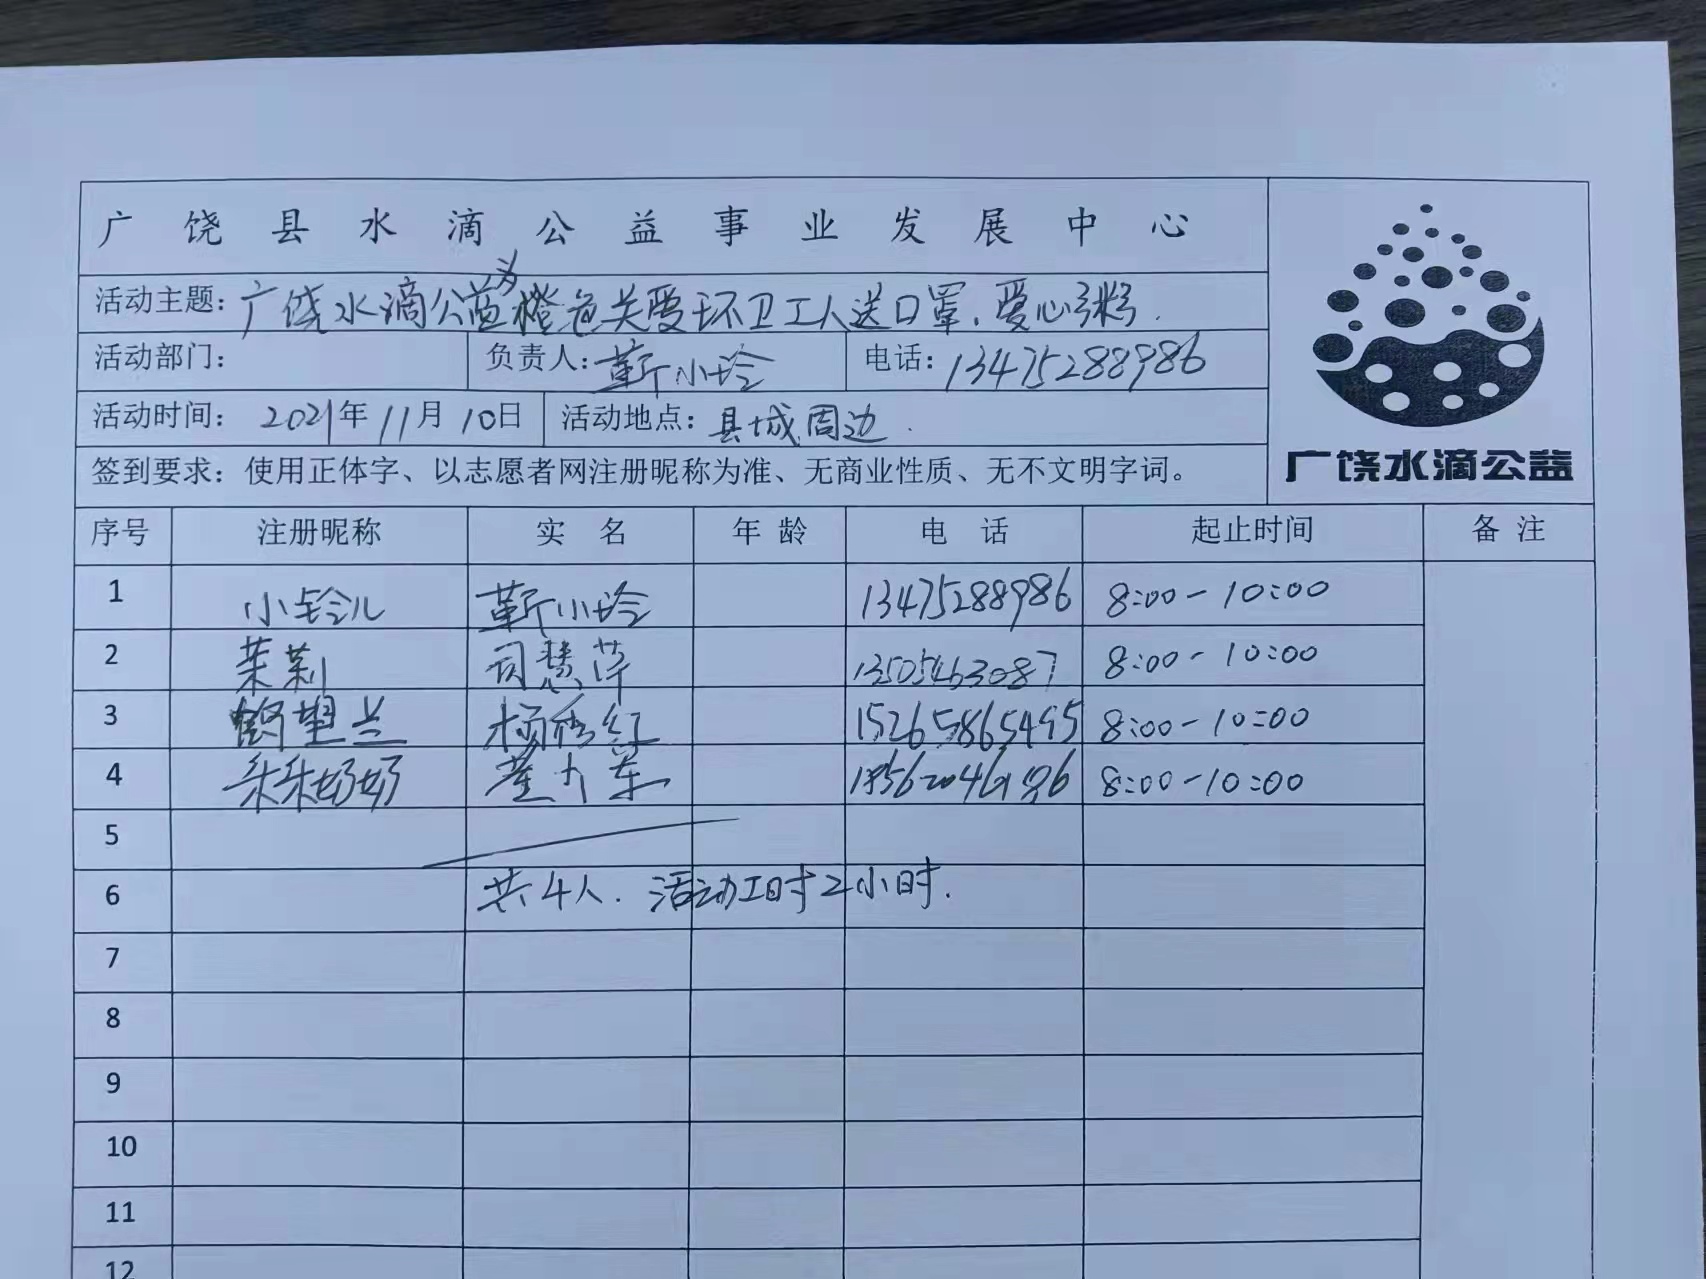 广饶县水滴公益事业发展中心
活动主题：广饶水滴公益为橙色关爱环卫工人送口罩、爱心粥.
活动部门： 负责人：靳小玲 电话：13475288986
活动时间：2021年11月10日 活动地点：县城周边.
签到要求：使用正体字、以志愿者网注册昵称为准、无商业性质、无不文明字词。
广饶水滴公益
序号 注册昵称 实 名 年 龄 电 话 起止时间 备 注
1 小铃儿 靳小玲 13475288986 8:00-10:00
2 茉莉 司慧萍 13505463087 8:00-10:00
3 鹤望兰 杨秀红 15265865495 8:00-10:00
4 朵朵奶奶 8:00-10:00
5
6 共4人. 活动工时2小时.
7
8
9
10
11
12